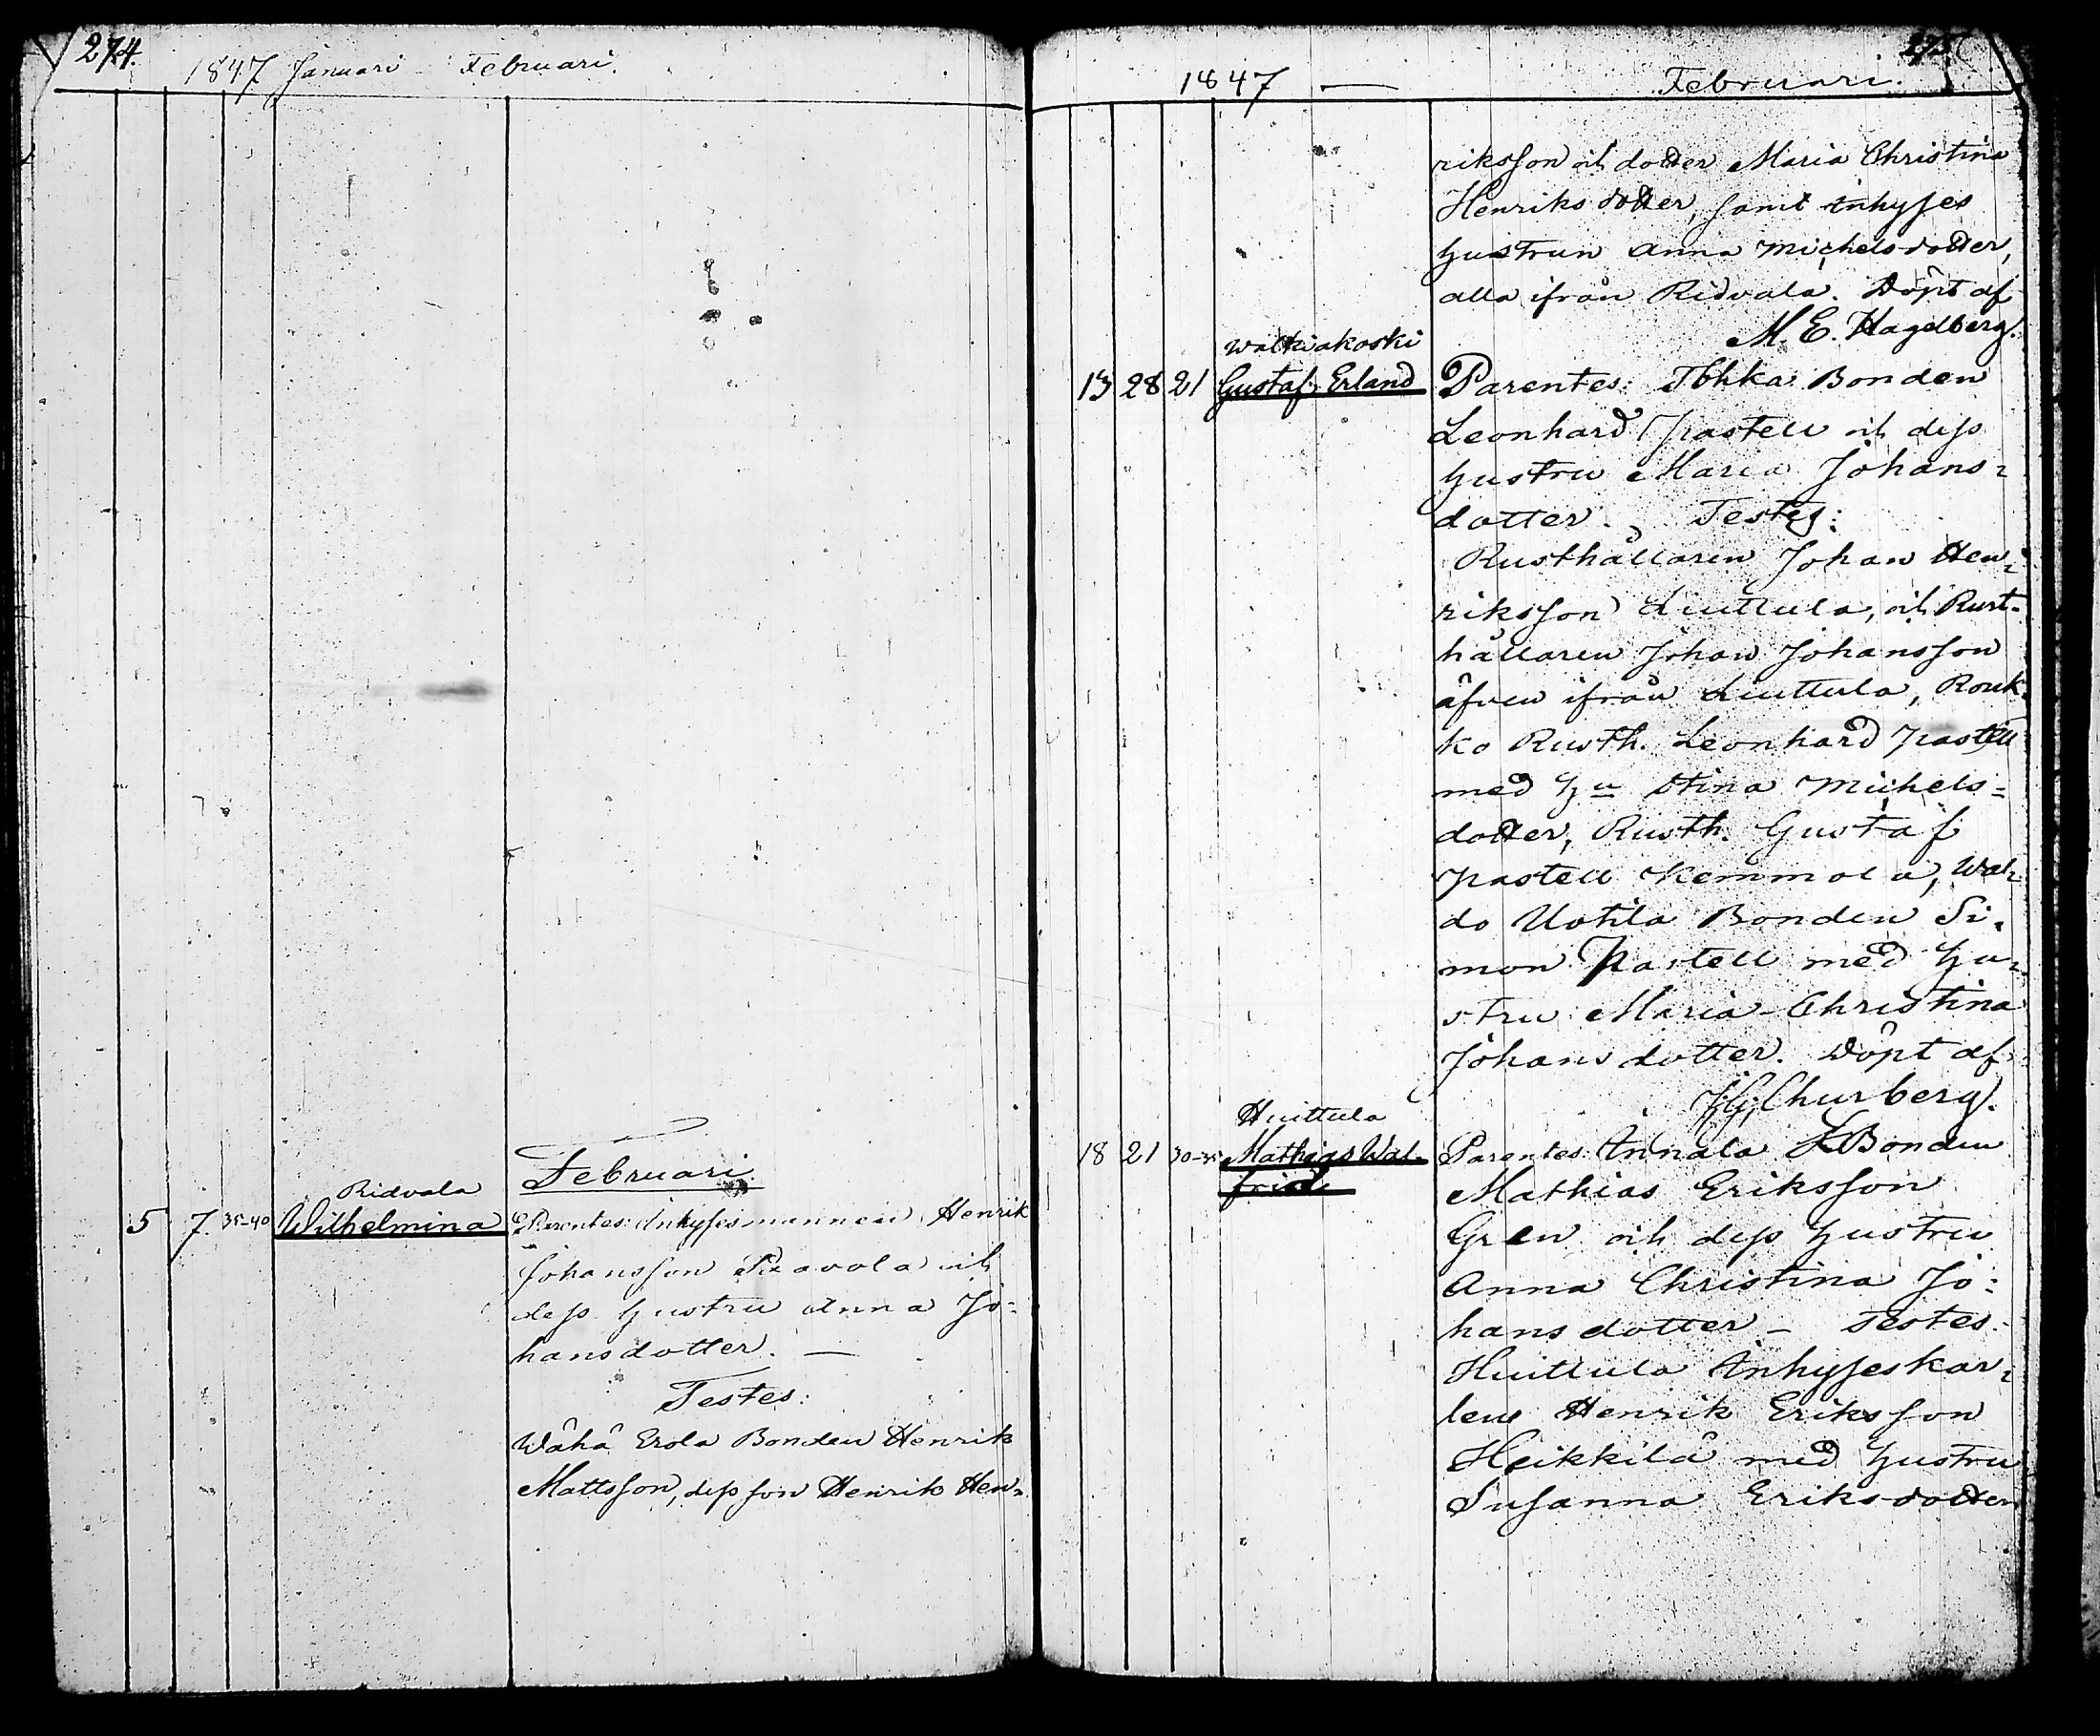 274.
1847 Januari - Februari.
Februari
Ridvala
5 7. 35-40 Wilhelmina Parentes: Inhysesmannen Henrik
Johansson Paavola och
dess hustru Anna Jo=
hansdotter. —
Testes:
Wähä Erola Bonden Henrik
Mattsson, dess son Henrik Hen=
275
1847 — Februari.
riksson och dotter Maria Christina
Henriksdotter, samt inhyses
hustrun Anna Michelsdotter,
alla ifrån Ridvala. Döpt af
M. E. Hagelberg.
Walkiakoski
13 28 21 Gustaf Erland Parentes: Bonden
Leonhard Pastell och dess
hustru Maria Johans=
dotter. Testes:
Rusthållaren Johan Hen=
riksson Liuttula, och Rust=
hållaren Johan Johansson
äfven ifrån Liuttula, Rouk=
ko Rusth. Leonhard Pastell
med hu Stina Michels=
dotter, Rusth. Gustaf
Pastell Kemmola, Wal=
do Uotila Bonden Si=
mon Pastell med hu=
stru Maria Christina
Johansdotter. Döpt af
Churberg.
Huittula
18 21 30-35 Mathias Wal= Parentes: Annala Bonden
frid Mathias Eriksson
Gren och dess hustru
Anna Christina Jo=
hansdotter — Testes:
Huittula Inhyseskar=
len Henrik Eriksson
Heikkilä med hustru
Susanna Eriksdotter